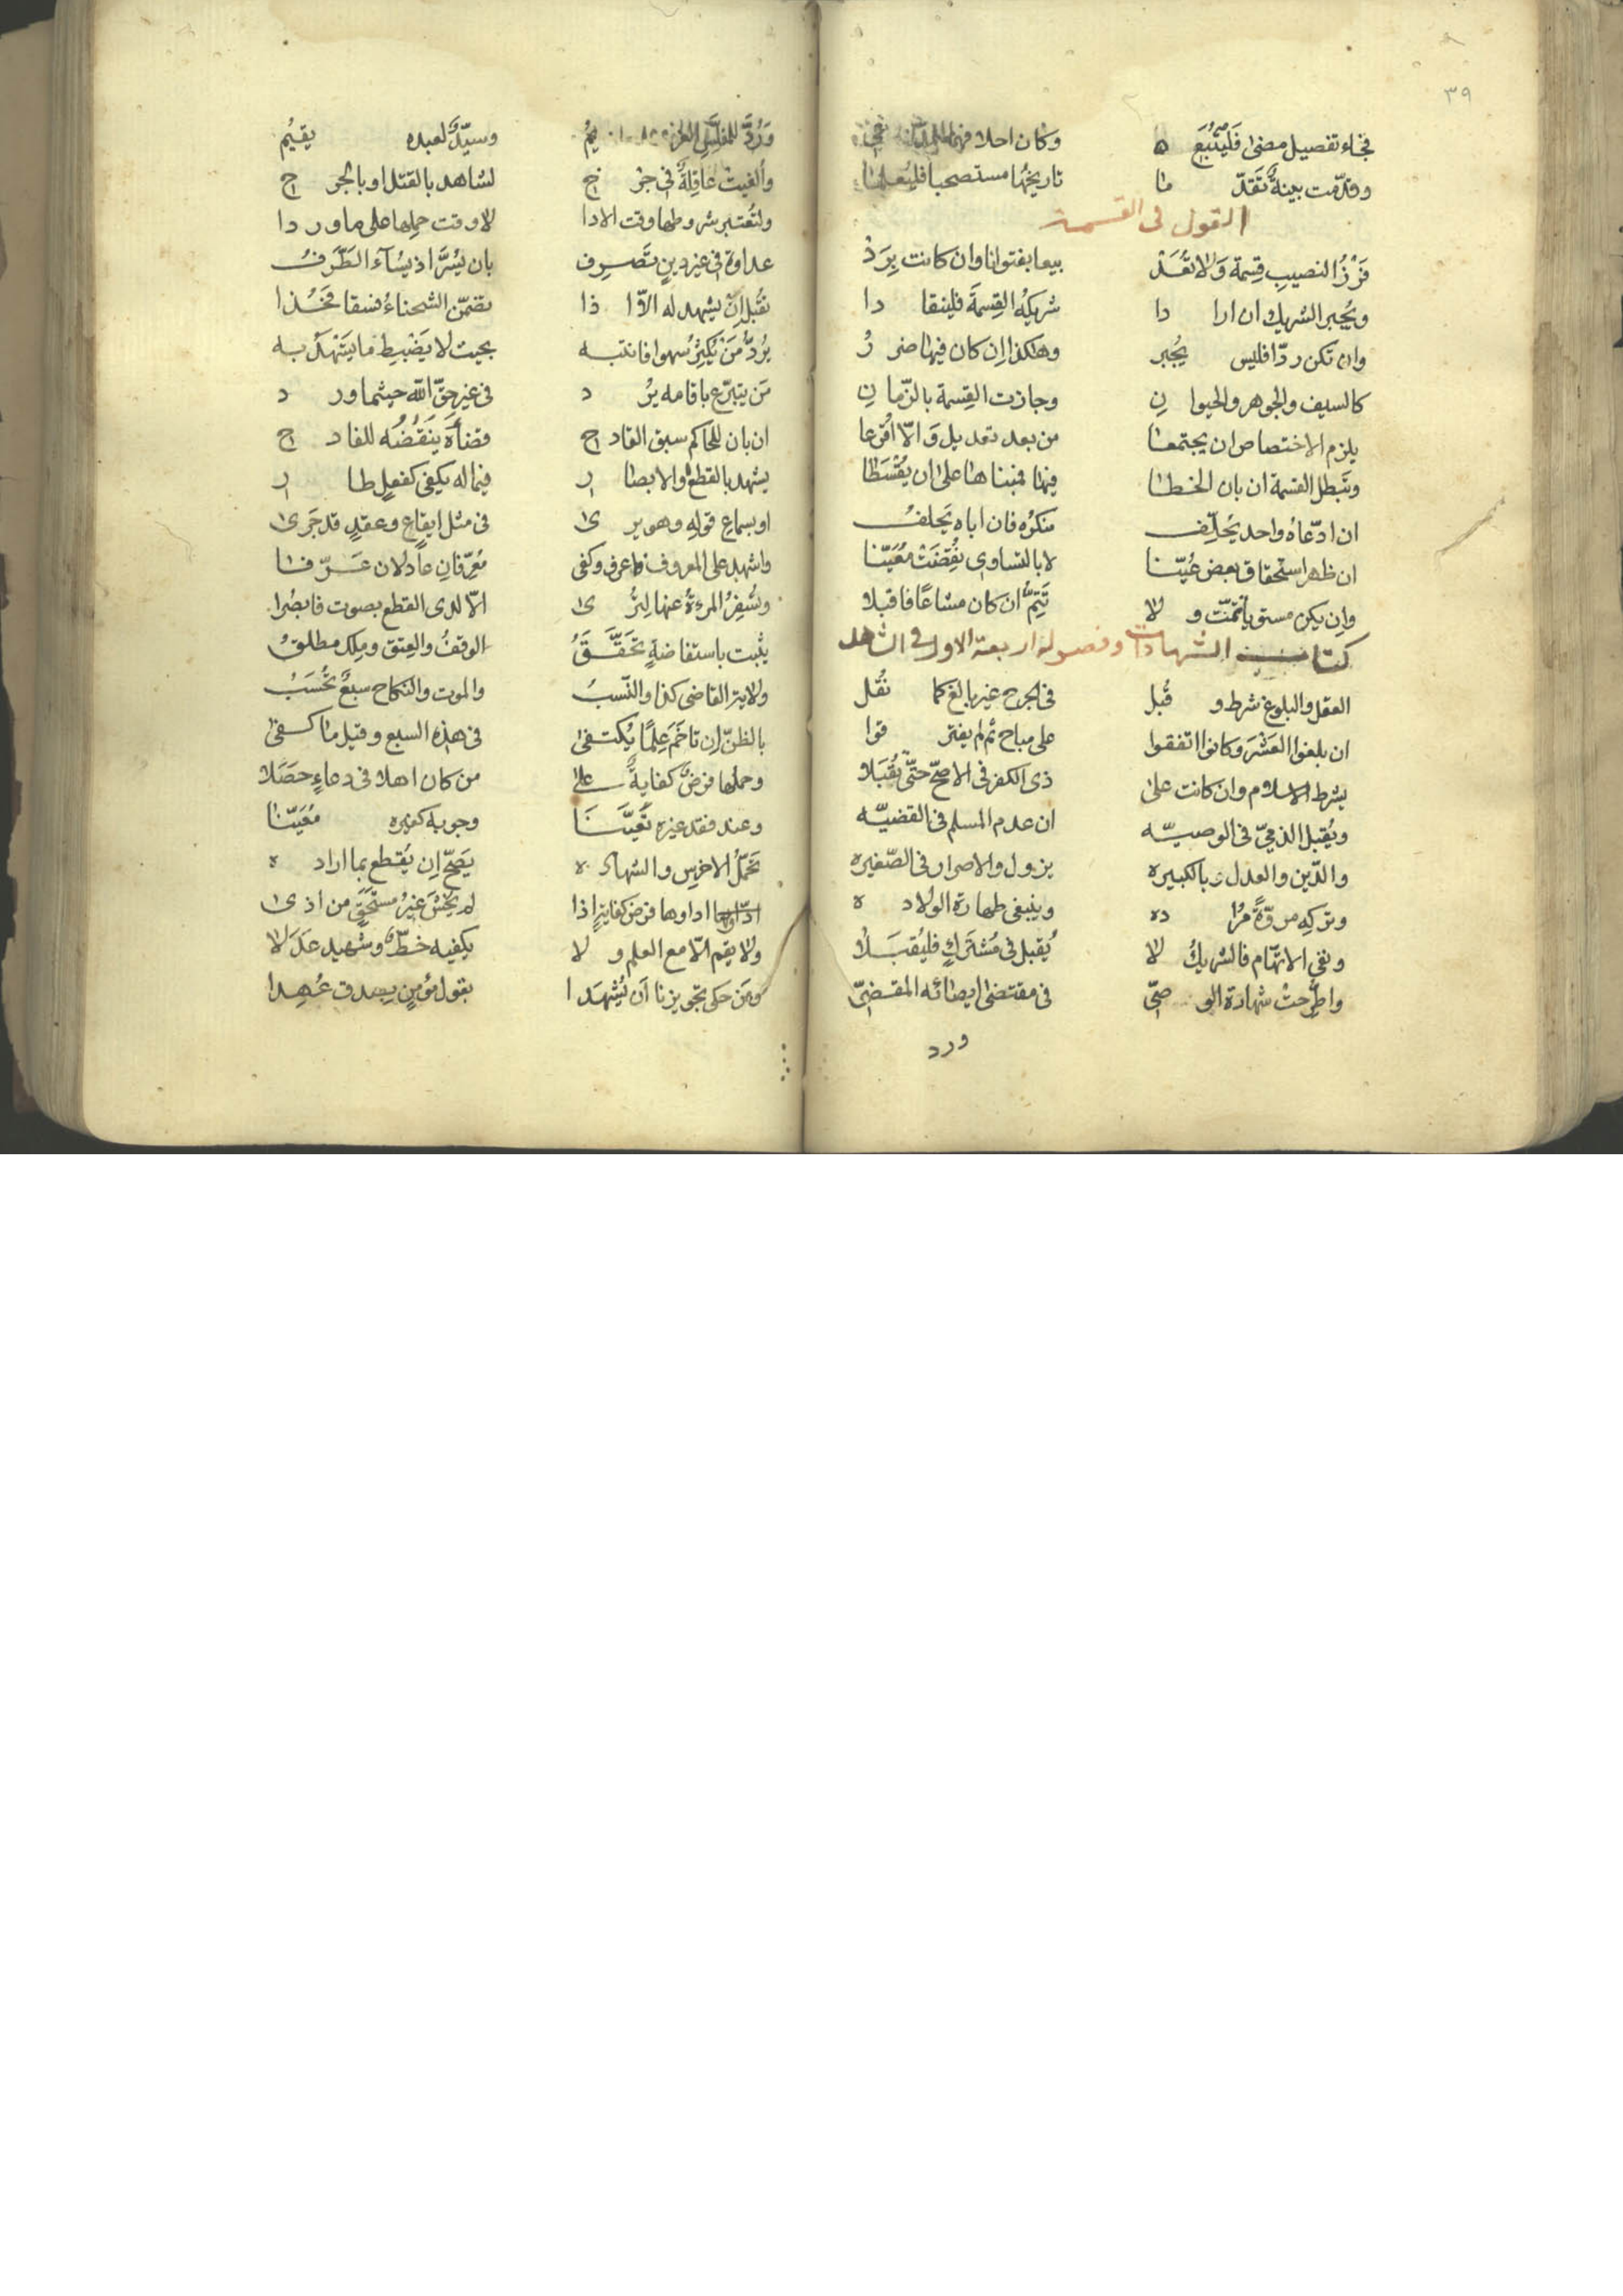 ٣٩
فجاء تفصيل مضى فليتبعها وكان احلا
وقدمت بينة تقدما تاريخها مستصحبا فليعلما
القول فى القسمة
فرز النصيب قسمة ولا تعد بيعا بفتوانا وان كانت برد
ويجبر الشريك ان ارادا شريكه القسمة فلينقادا
وان تكن ردا فليس يجبر وهكذا ان كان فيها ضرر
كالسيف والجوهر والحيوان وجازت القسمة بالزمان
يلزم الاختصاص ان يجتمعا من بعد تعديل والا اقرعا
وتبطل القسمة ان بان الخطا فيها فبناها على ان يقسطا
ان ادعاه واحد يحلف منكره فان اباه يحلف
ان ظهر استحقاق بعض عينا لا بالتساوى نقضت معينا
وان يكن مستويا تمت ولا تتم ان كان مشاعا فاقبلا
كتاب الشهادات وفصوله اربعة الاول فى الشاهد
العقل والبلوغ شرط وقبل فى الجرح غير بالغ كما نقل
ان بلغوا العشر وكانوا اتفقوا على مباح ثم لم يفترقوا
بشرط الاسلام وان كانت على ذى الكفر فى الاصح حتى تقبلا
ويقبل الذمى فى الوصيه ان عدم المسلم فى القضيه
والدين والعدل وبالكبيره يزول والاصرار فى الصغيره
وتركه مروة مراده وينبغى طهارة الولاده
ونفى الاتهام فالشريك لا يقبل فى مشترك فليقبلا
واطرحت شهادة الوصى فى مقتضى ايصائه المقضى
ورد
ورد للمفلس وسيد لعبده يقيم
وألغيت عاقلة فى جرح لشاهد بالقتل او بالجرح
ولتعتبر شروطها وقت الادا لا وقت حملها على ما وردا
عداوة فى غير دين تصرف بان يسر اذ يساء الطرف
نقبل ان يشهد له الا اذا تضمن الشحناء فسقا فخذا
يرد من يكثر سهوا فانتبه بحيث لا يضبط ما يشهد به
من يتبرع باقامه يرد فى غير حق الله حيثما ورد
ان بان للحاكم سبق القادح قضاؤه ينقضه للقادح
يشهد بالقطع والابصار فيما له يكفى كفعل طار
او بسماع قوله وهو يرى فى مثل ايقاع وعقد قد جرى
واشهد على المعروف ما عرف وكفى معرفان عادلان عرفا
وتسفر المرءة عنها لترى الا لدى القطع بصوت فابصرا
يثبت باستفاضة تحقق الوقف والعتق وملك مطلق
ولاية القاضى كذا والنسب والموت والنكاح سبع تحسب
بالظن ان تاخم علما يكتفى فى هذه السبع وقيل ما كفى
وحملها فرض كفاية على من كان اهلا فى دعاء حصلا
وعند فقد غيره تعينا وجوبه كغيره معينا
تحمل الاخرس والشهاده يصح ان يقطع بما اراده
اداوها فرض كفاية اذا لم يخش غير مستحق من اذى
ولا يقم الا مع العلم ولا يكفيه خط وشهيد عدلا
ومن حكى تجويزنا ان يشهدا بقول مؤمن بصدق عهدا